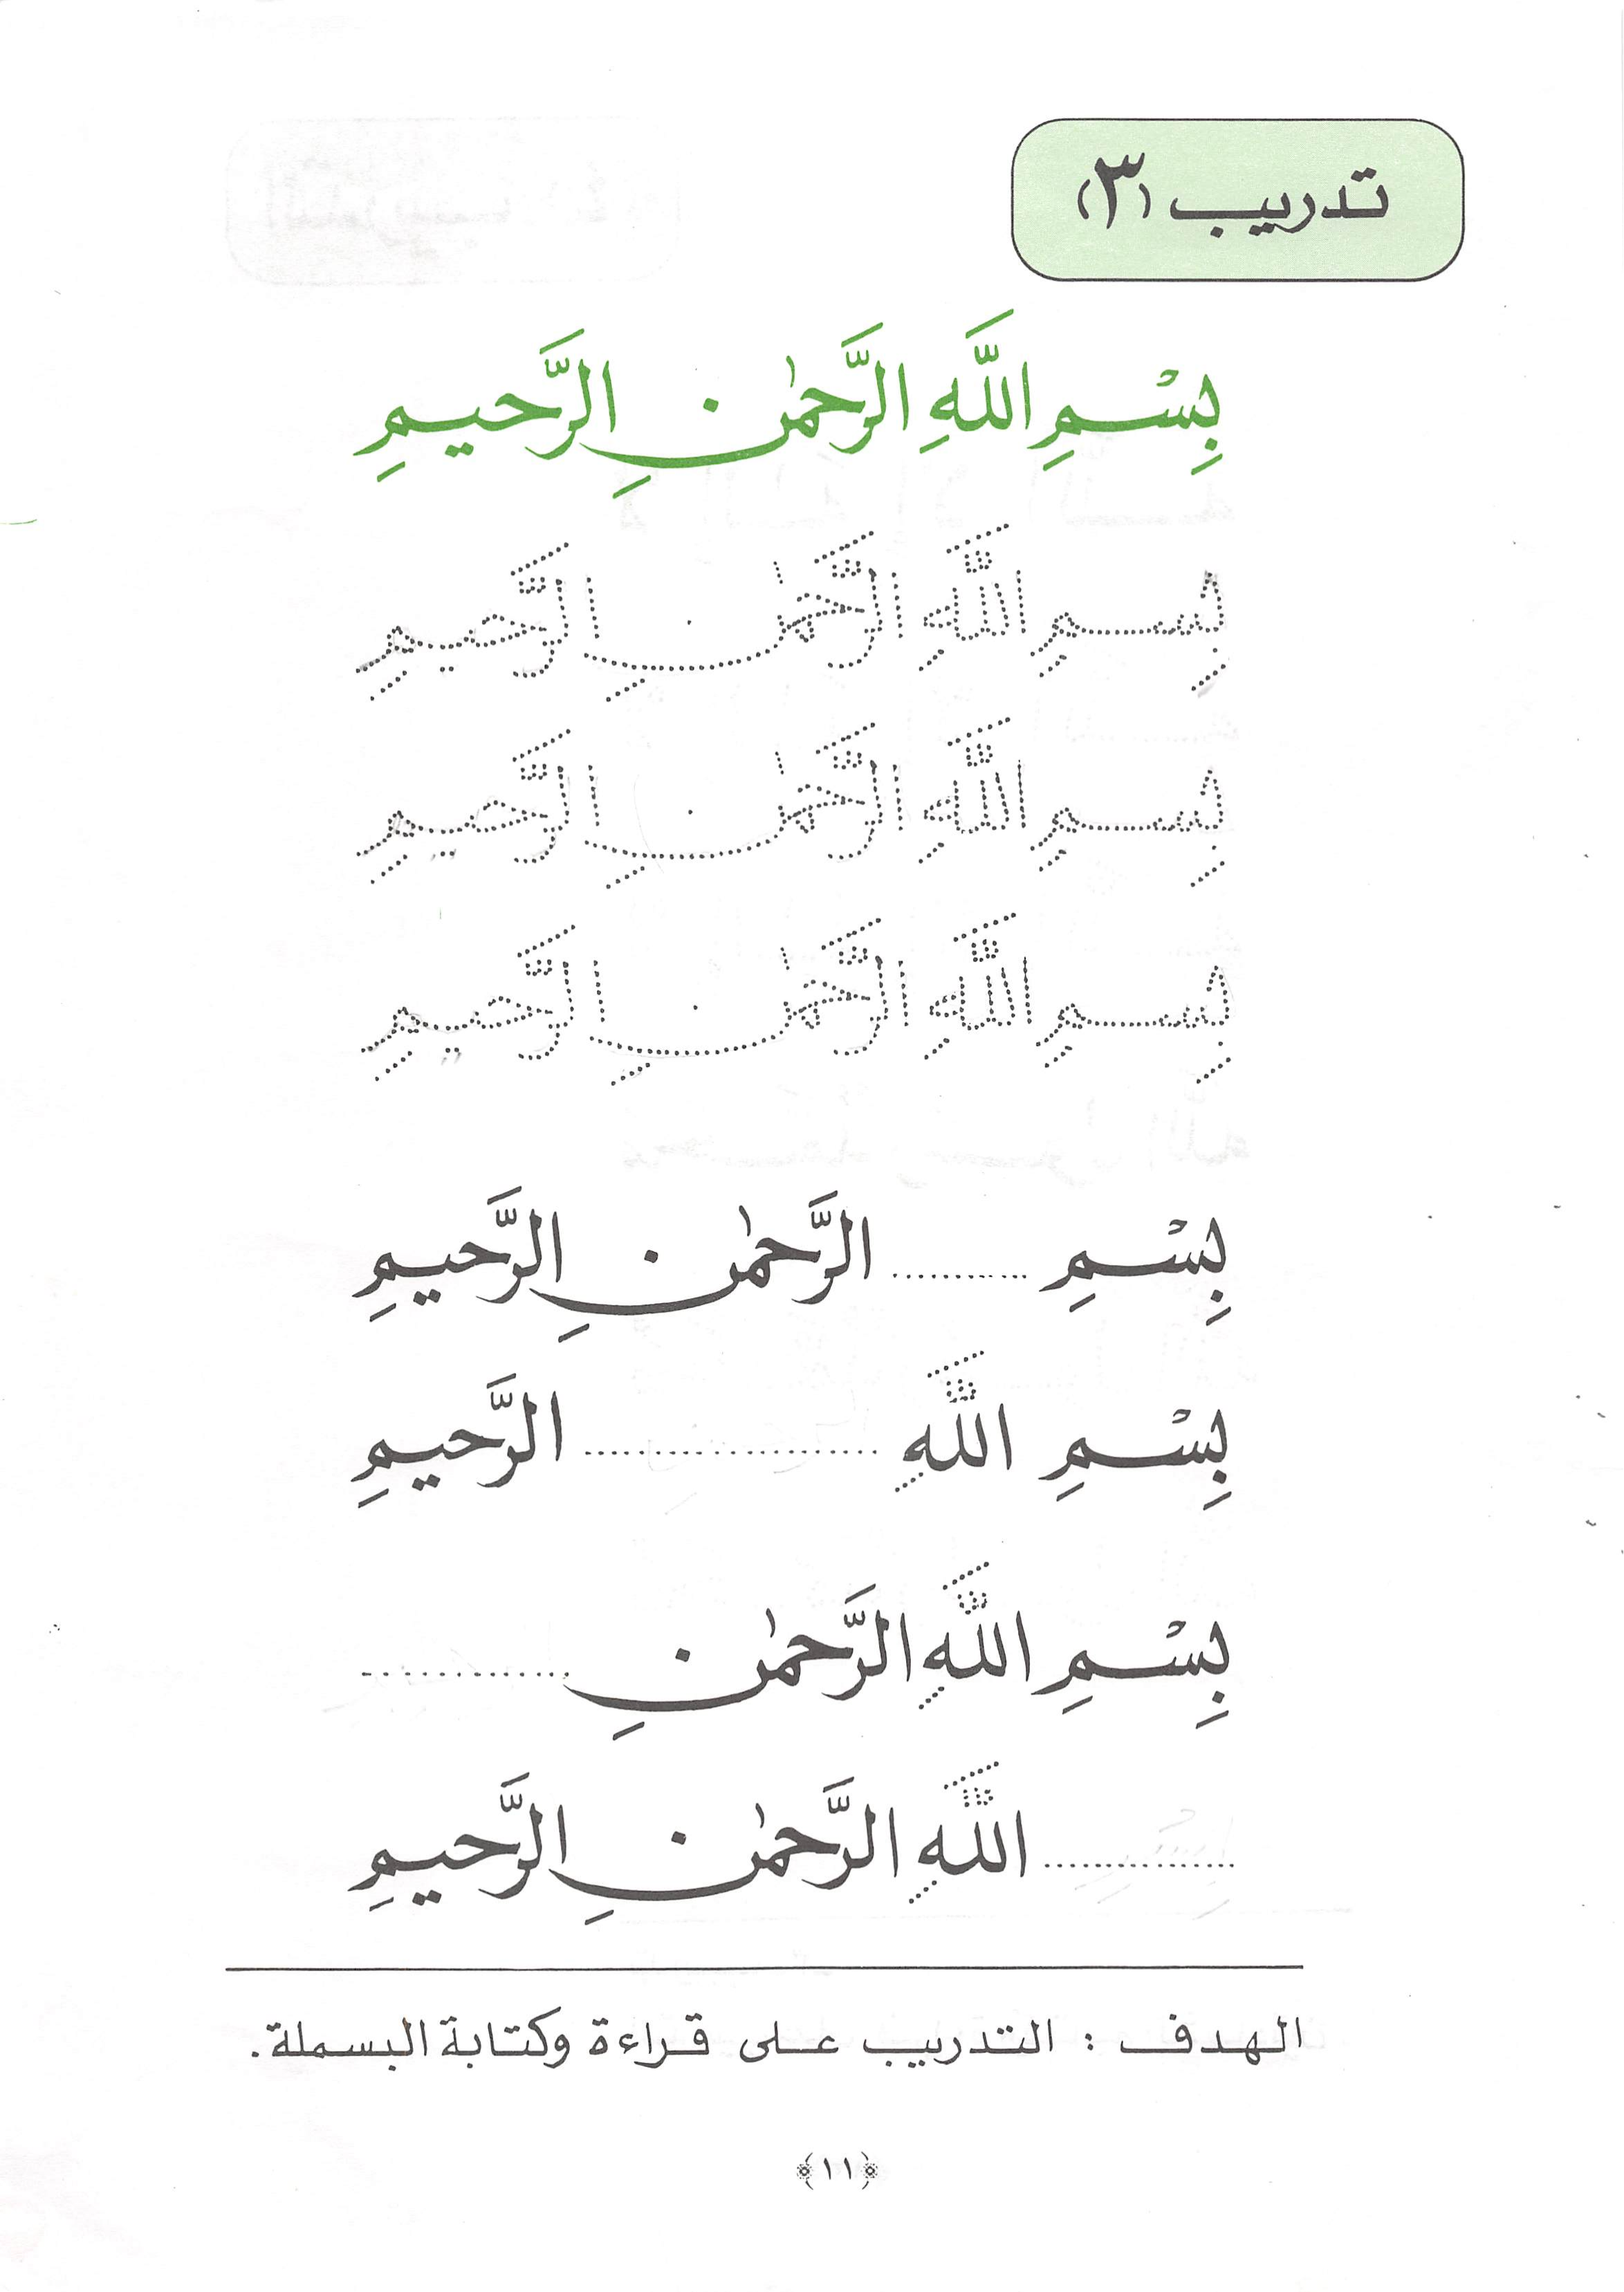 تدريب (٣)
بِسْمِ اللَّهِ الرَّحْمٰنِ الرَّحِيمِ
بِسمِ اللَّهِ الرَّحمٰنِ الرَّحيمِ
بِسمِ اللَّهِ الرَّحمٰنِ الرَّحيمِ
بِسمِ اللَّهِ الرَّحمٰنِ الرَّحيمِ
بِسْمِ ............ الرَّحمٰنِ الرَّحيمِ
بِسْمِ اللَّهِ ........................ الرَّحيمِ
بِسْمِ اللَّهِ الرَّحمٰنِ ..................
................ اللَّهِ الرَّحمٰنِ الرَّحيمِ
الهدف : التدريب على قراءة وكتابة البسملة.
﴿١١﴾